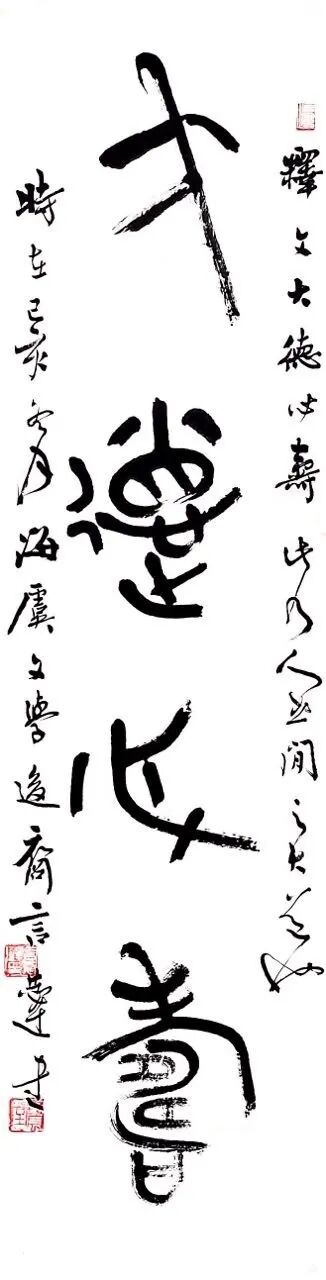 釋文大德必壽此乃人世間之大道也
大德必壽
時在己亥冬月海虞文學後裔言